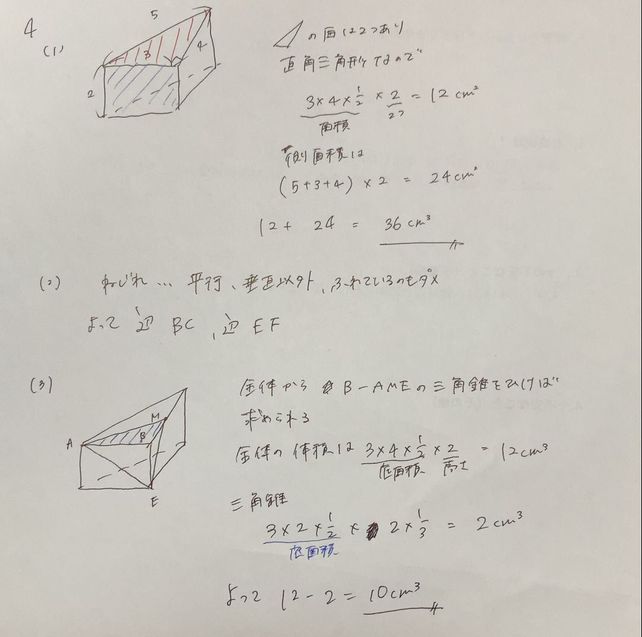 4
(1)
5
3
4
2
の面は2つあり
直角三角形なので
3×4×1/2 × 2 = 12 cm²
面積 2つ
側面積は
(5+3+4) × 2 = 24cm²
12 + 24 = 36 cm³
(2) ねじれ… 平行、垂直以外、ふれているのもダメ
よって 辺 BC、辺 EF
(3)
A
M
B
E
全体から B-AMEの三角錐をひけば
求められる
全体の体積は 3×4×1/2 × 2 = 12cm³
底面積 高さ
三角錐
3×2×1/2 × 2×1/3 = 2cm³
底面積
よって 12-2 = 10cm³